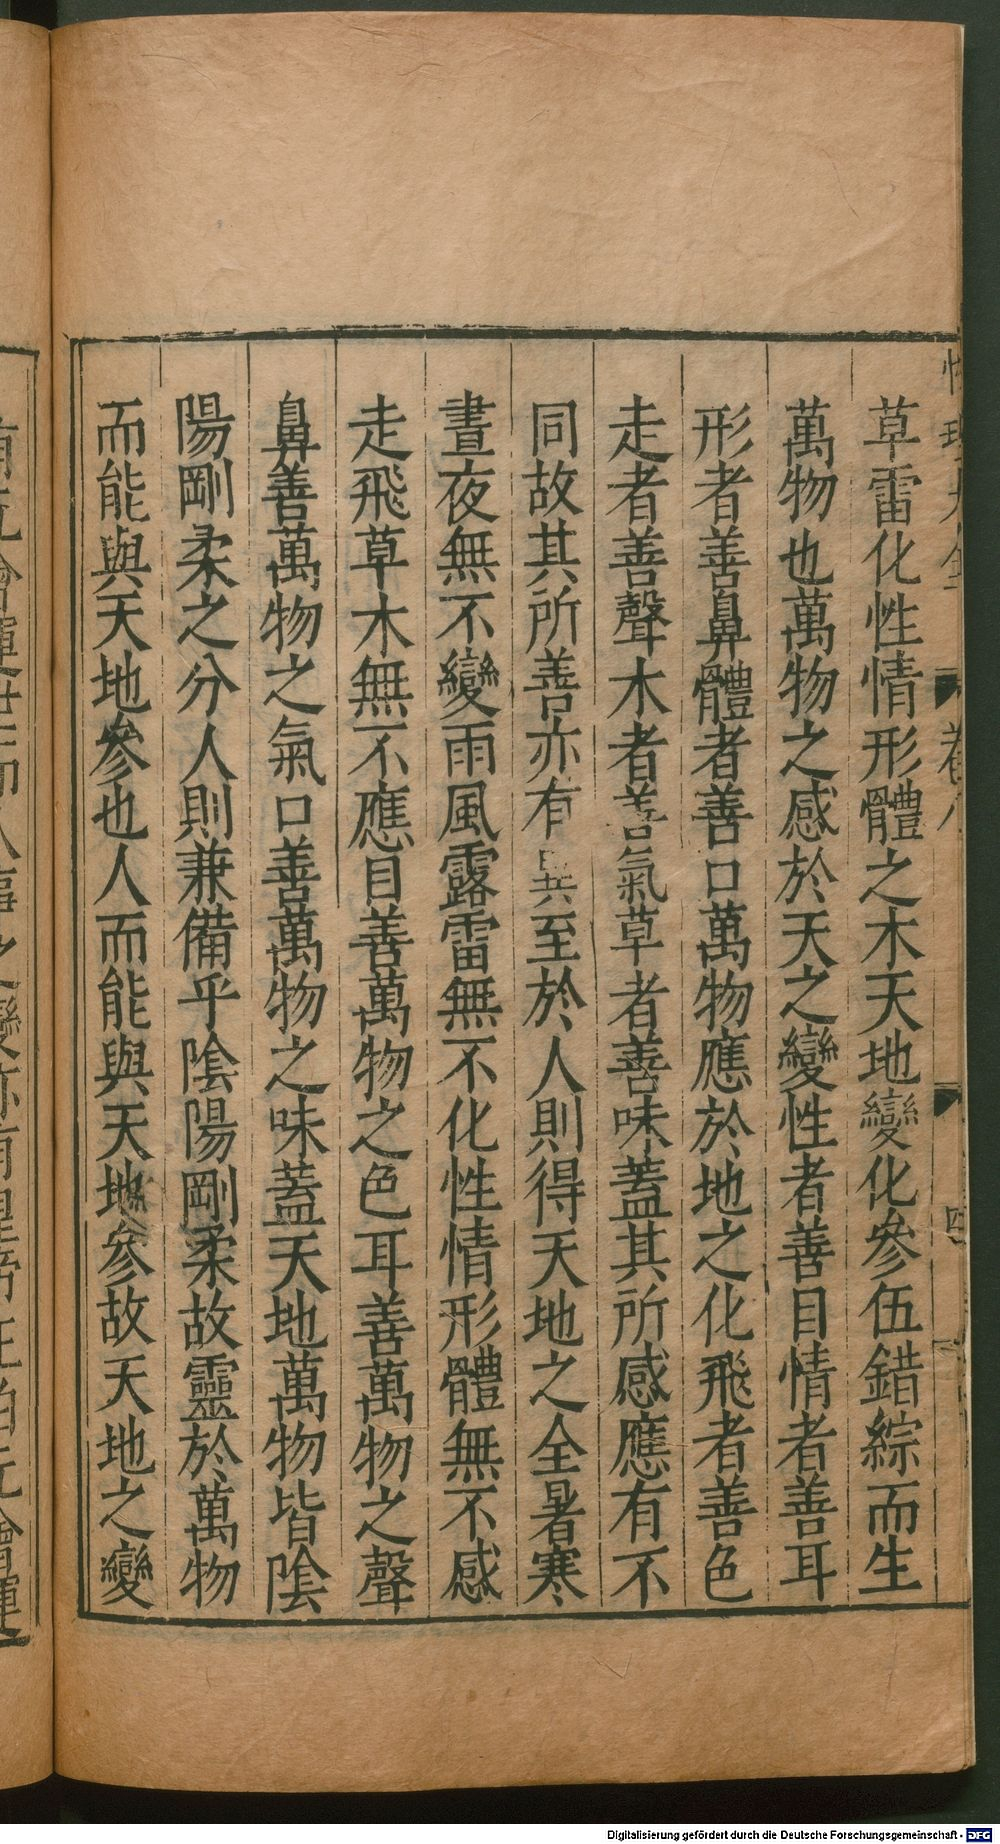 草雷化性情形體之木天地變化參伍錯綜而生
萬物也萬物之感於天之變性者善目情者善耳
形者善鼻體者善口萬物應於地之化飛者善色
走者善聲木者善氣草者善味蓋其所感應有不
同故其所善亦有異至於人則得天地之全暑寒
晝夜無不變雨風露雷無不化性情形體無不感
走飛草木無不應目善萬物之色耳善萬物之聲
鼻善萬物之氣口善萬物之味蓋天地萬物皆陰
陽剛柔之分人則兼備乎陰陽剛柔故靈於萬物
而能與天地參也人而能與天地參故天地之變
Digitalisierung gefördert durch die Deutsche Forschungsgemeinschaft - DFG